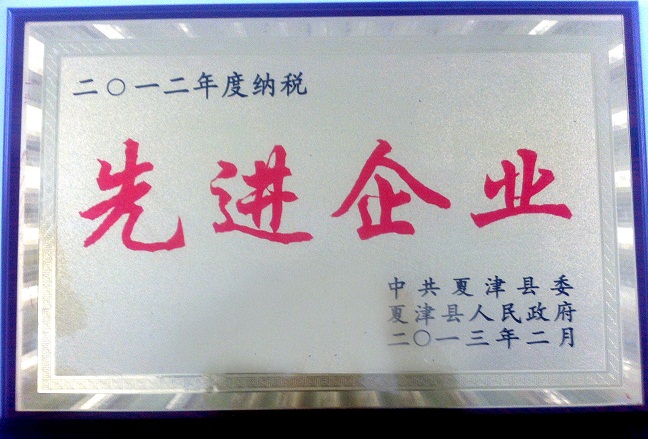 二〇一二年度纳税
先进企业
中共夏津县委
夏津县人民政府
二〇一三年二月